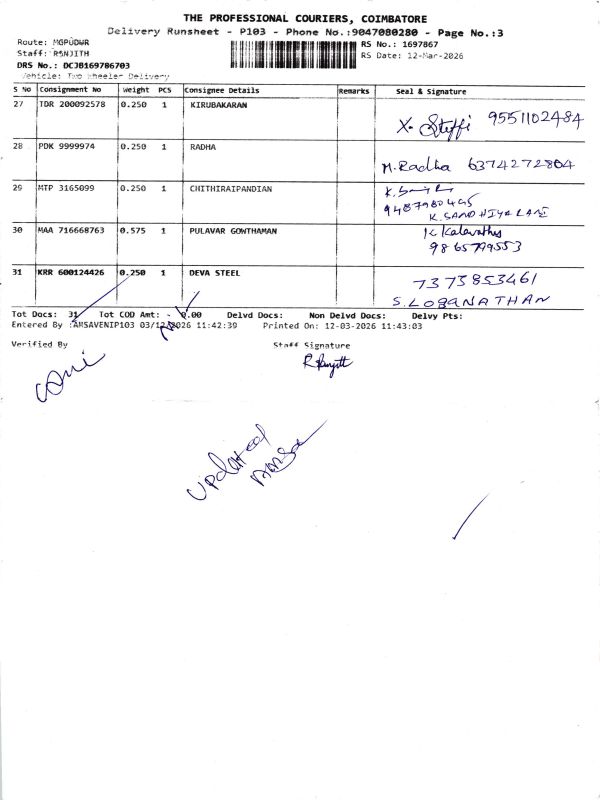 THE PROFESSIONAL COURIERS, COIMBATORE
Delivery Runsheet - P103 - Phone No.:9047080280 - Page No.:3
Route: MGPUDWR
Staff: R5NJITH
DRS No.: DCJB169786703
Vehicle: Two Wheeler Delivery
RS No.: 1697867
RS Date: 12-Mar-2026
S No Consignment No Weight PCS Consignee Details Remarks Seal & Signature
27 TDR 200092578 0.250 1 KIRUBAKARAN
X. Steffi 9551102484
28 PDK 9999974 0.250 1 RADHA
M. Radha 6374272804
29 MTP 3165099 0.250 1 CHITHIRAIPANDIAN
9487980495
30 MAA 716668763 0.575 1 PULAVAR GOWTHAMAN
9865799553
31 KRR 600124426 0.250 1 DEVA STEEL
7373853461
S. LOGANATHAN
Tot Docs: 31 Tot COD Amt: - 0.00 Delvd Docs: Non Delvd Docs: Delvy Pts:
Entered By :AMSAVENIP103 03/12/2026 11:42:39 Printed On: 12-03-2026 11:43:03
Verified By Staff Signature
updated